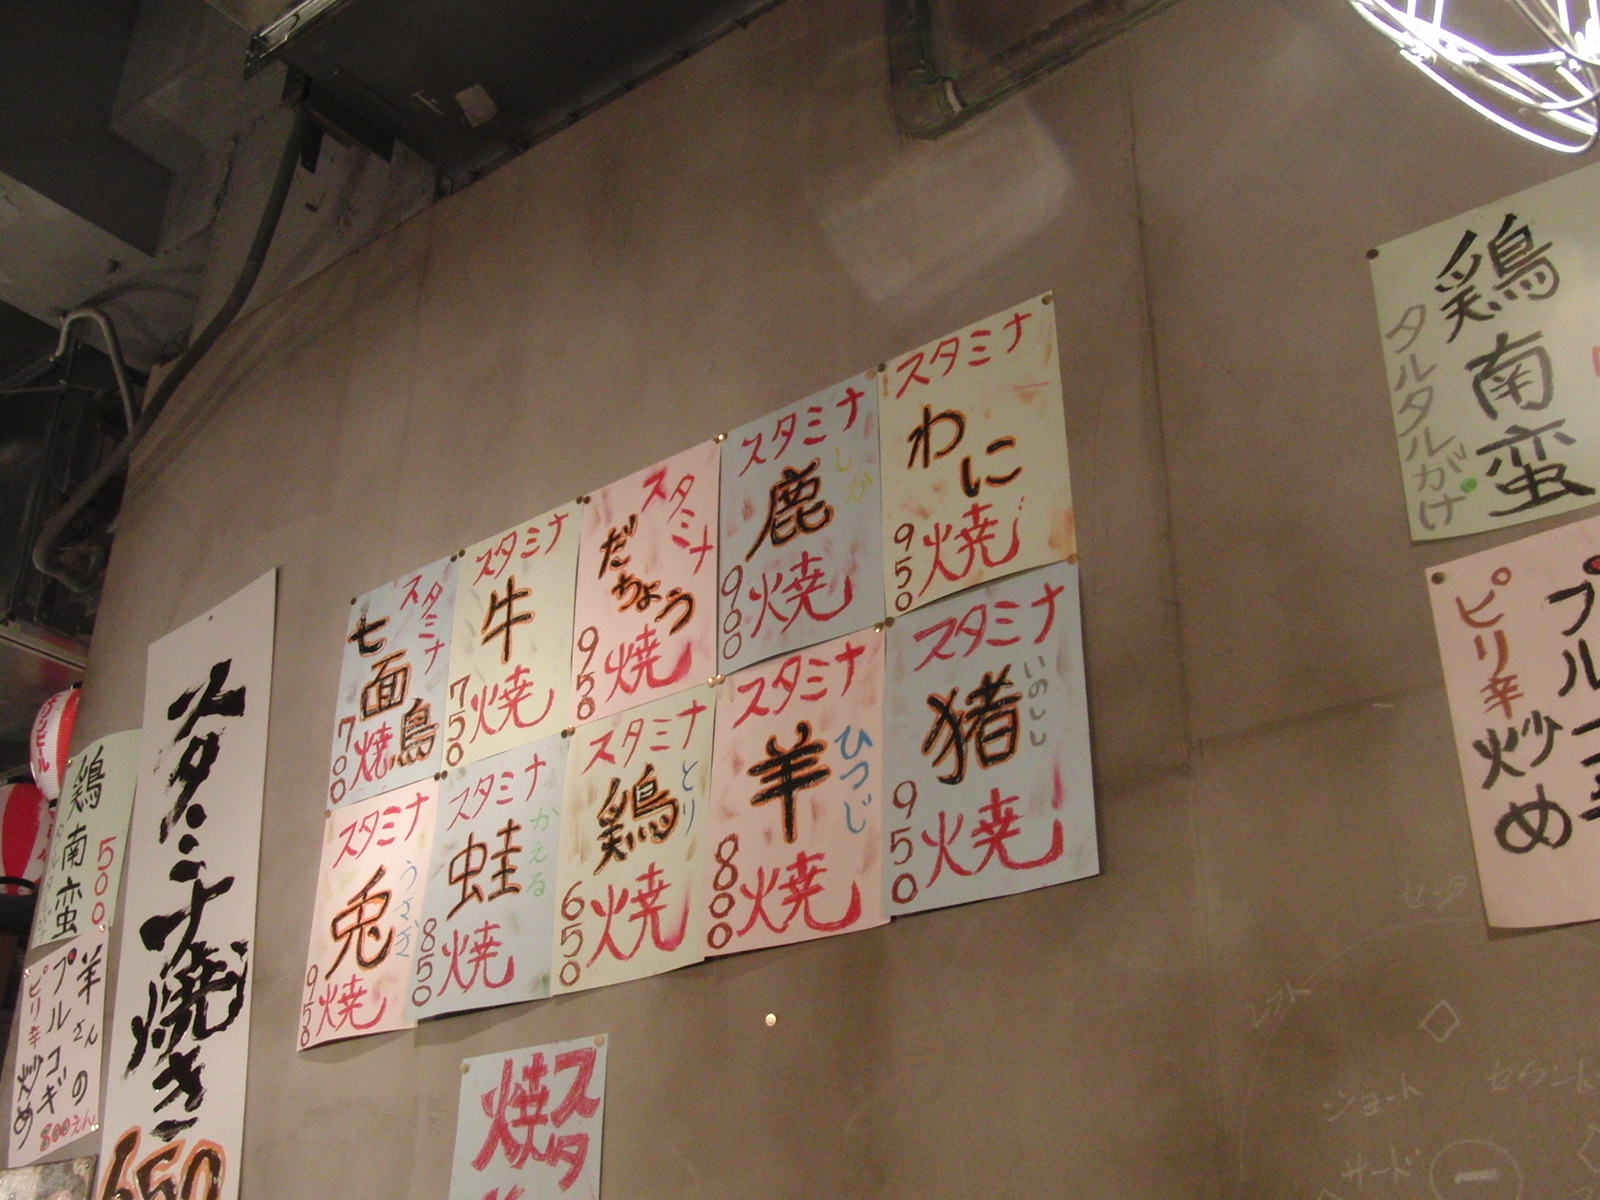 スタミナ
わに
焼
950
スタミナ
鹿
しか
焼
900
スタミナ
だちょう
焼
950
スタミナ
牛
焼
750
スタミナ
七面鳥
焼
700
スタミナ
猪
いのしし
焼
950
スタミナ
羊
ひつじ
焼
800
スタミナ
鶏
とり
焼
650
スタミナ
蛙
かえる
焼
850
スタミナ
兎
うさぎ
焼
950
鶏南蛮
タルタルがけ
プルコギ
ピリ辛
炒め
スタミナ焼き
650
鶏南蛮
500
羊さんの
プルコギ
ピリ辛炒め
800えん
スタ
焼
ショート
サード
セカンド
レフト
センタ